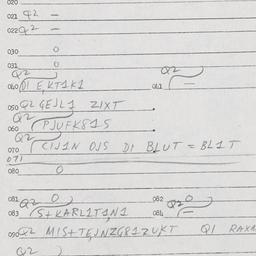 020
021 Q2 —
022 Q2 —
030 0
031 0
Q2 Q2
040 DI E,KT1K1 041 —
050 Q2 GEJL1 ZIXT .
Q2
060 PJUFK815
Q2
070 CIJ1N OJS DI BLUT = BL1T
071
080 0
081 Q2 0 082 Q2 0
083 S+KARL1T1N1 084 —
090 Q2 MIS+TE,INZG81ZUKT Q1
Q2